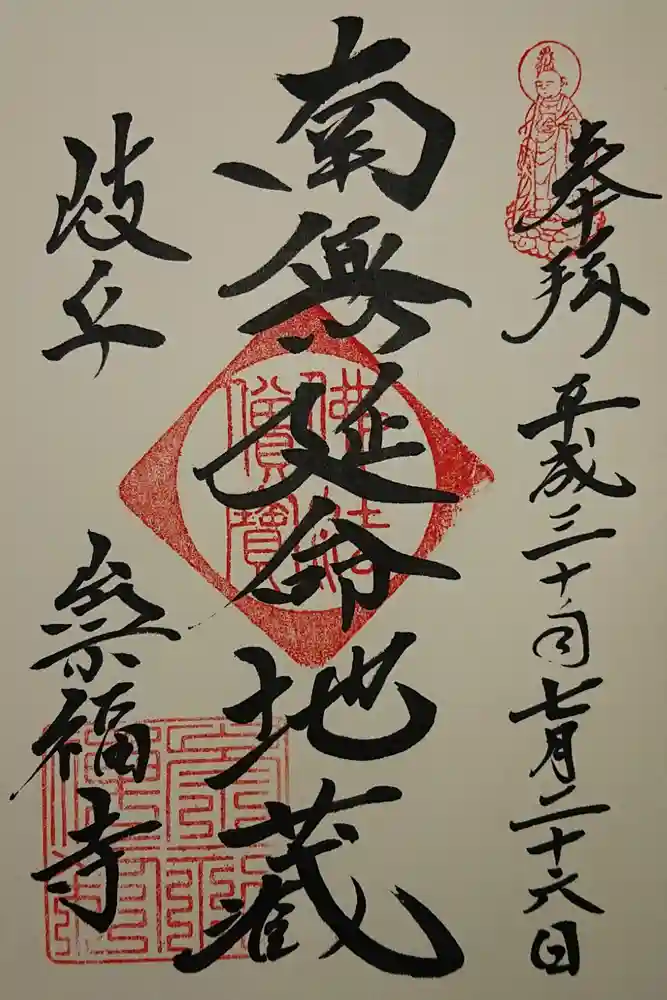 奉拝 平成三十年七月二十六日
南無延命地蔵
佛法
僧寶
岐阜 崇福寺